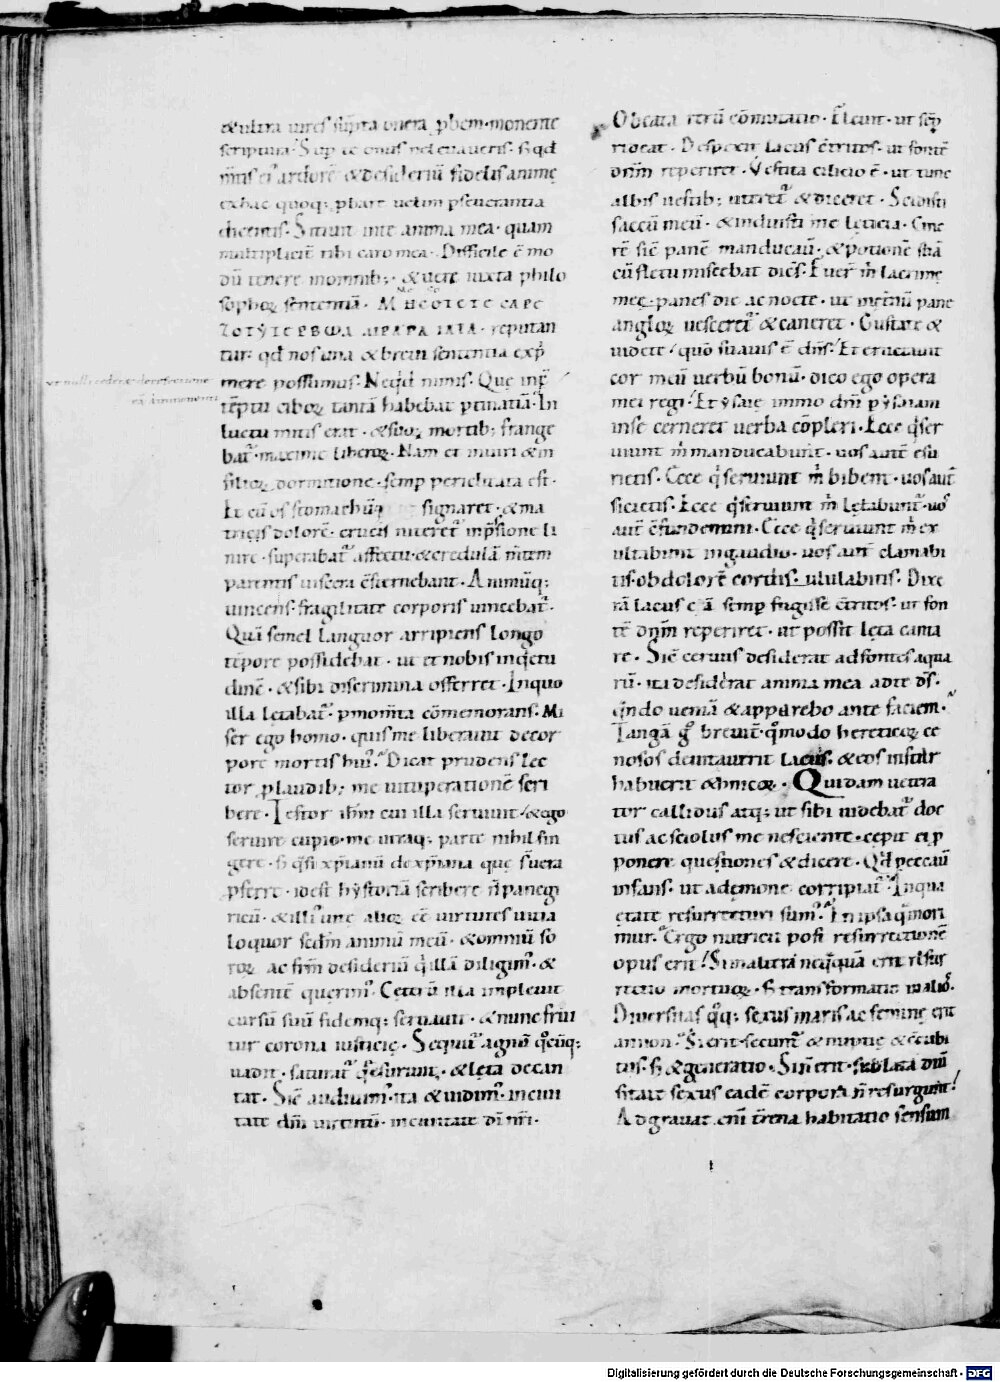 &ultra uires sup̄ra onera phem · monente
scriptura · Sup te onus ne leuaueris · s; qd
m̄tis ei' ardorē & desideriū fidelis animę
ex hac quoq; pbare uelim pseuerantia
dicentis · Sitiuit in te anima mea · quam
multiplicit̄ tibi caro mea · Difficile ē mo
dū tenere in omnib; · & uere iuxta philo
sophoꝝ sententiā ·
reputan
tur · qd nos una & breui sententia exp̄
mere possumus · Neqd nimis · Que inp̄
uł nulli cedere de refectione
tēptu ciboꝝ tantā habebat ptinatiā · In
luctu mitis erat · & suoꝝ mortib; frange
bat᷑ · maxime liberoꝝ · Nam et mariti & fi
silioꝝ dormitione · semp periclitata est ·
Et cū os stomachūq; signaret · & ma
tricis dolorē · crucis niteret᷑ inp̄ssione li
nire · superabat᷑ affectu · & credulā m̄tem
parentis uiscera cōsternebant · Animūq;
uincens · fragilitate corporis uincebat᷑ ·
Quā semel languor arripiens longo
tēpore possidebat · ut et nobis inq̇etu
dinē · & sibi discrimina offerret · In quo
illa lętabat᷑ · p mom̄ta cōmemorans · Mi
ser ego homo · quis me liberauit de cor
pore mortis hui᷒ · Dicat prudens lec
tor p laudib; me uituperationē scri
bere · Testor ihm̄ cui illa seruiuit / & ego
seruire cupio · me utraq; parte nihil fin
gere · s; q̇si xp̄ianū de xp̄iana que s̄t uera
pferre · id est hystoriā scribere n̄ panegi
ricū · & illi᷒ uitię alioꝝ eē uirtutes · iuxta
loquor sedm animū meū · & omniū so
roꝝ ac frm̄ desideriū q̇ illā diligim᷒ · &
absentē querim᷒ · Ceterū illa impleuit
cursū suū fidemq; seruauit · & nunc frui
tur corona iusticię · Sequit᷑ agnū q̊cūq;
uadit · saturat᷑ q̇ esuriunt · & lęta decan
tat · Sic̄ audiuim᷒ · ita & uidim᷒ · in ciui
tate dn̄i uirtutū · in ciuitate dī nr̄i ·
O beata rerū cōmutatio · Fleuit · ut semp
rideat · Despexit lacus c̄tritos · ut fontē
dnm̄ reperiret · Vestita cilicio ē · ut nunc
albis uestib; uteret᷑ & diceret · Scidisti
saccū meū · & induisti me lęticia · Cine
rē sic̄ panē manducauı̄ · & potionē suā
cū fletu miscebat dicēs · Fuer̄ m̄ lacrimę
meę · panes die ac nocte · ut inet̄nū pane
angloꝝ uesceret᷑ & caneret · Gustate &
uidete / quō suauis ē dn̄s · Et eructauit
cor meū uerbū bonū · dico ego opera
mea regi · Et ysaie immo dn̄i p ysaiam
in se cerneret uerba cōpleri · Ecce q̇ ser
uiunt m̄ manducabunt · uos autē esu
rietis · Ecce q̇ seruiunt m̄ bibent · uos aut̄
sicietis · Ecce q̇ seruiunt m̄ lętabunt᷑ · uos
aut̄ cōfundemini · Ecce q̇ seruiunt m̄ ex
ultabunt in gaudio · uos aut̄ clamabi
tis · ob dolorē cordis · ululabitis · Dixe
rā lacus eā semp fugisse c̄tritos · ut fon
tē dnm̄ reperiret · ut possit lęta canta
re · Sic̄ ceruus desiderat ad fontes aqua
rū · ita desiderat anima mea ad te ds̄ ·
q̇ndo ueniā & apparebo ante faciem ·
Tangā g̊ breuit̄ · q̊modo hereticoꝝ ce
nosos deuitauerit lacus · & eos instar
habuerit ethnicoꝝ · Quidam uetera
tor callidus atq; ut sibi uidebat᷑ doc
tus ac sciolus me nesciente · cępit ei p
ponere questiones & dicere · Qd peccauı̄
infans · ut a demone corripiat᷑ · In qua
ętate resurrecturi sum᷒ · In ipsa q̇ mori
mur · Ergo nutricıꝫ post resurrectionē
opus erit / Sin alitrā neq̇quā erit resur
rectio mortuoꝝ · s; transformatio in alios ·
Diuersitas q̊q; sexus maris ac feminę erit
an non · Si erit · secunt᷑ & nuptię & c̄cubi
tus · s; & generatio · Sin̄ erit · sublata diū
sitate sexus eadē corpora n̄ resurgunt /
Adgrauat enī t̄rena habitatio sensum
Digitalisierung gefördert durch die Deutsche Forschungsgemeinschaft - DFG